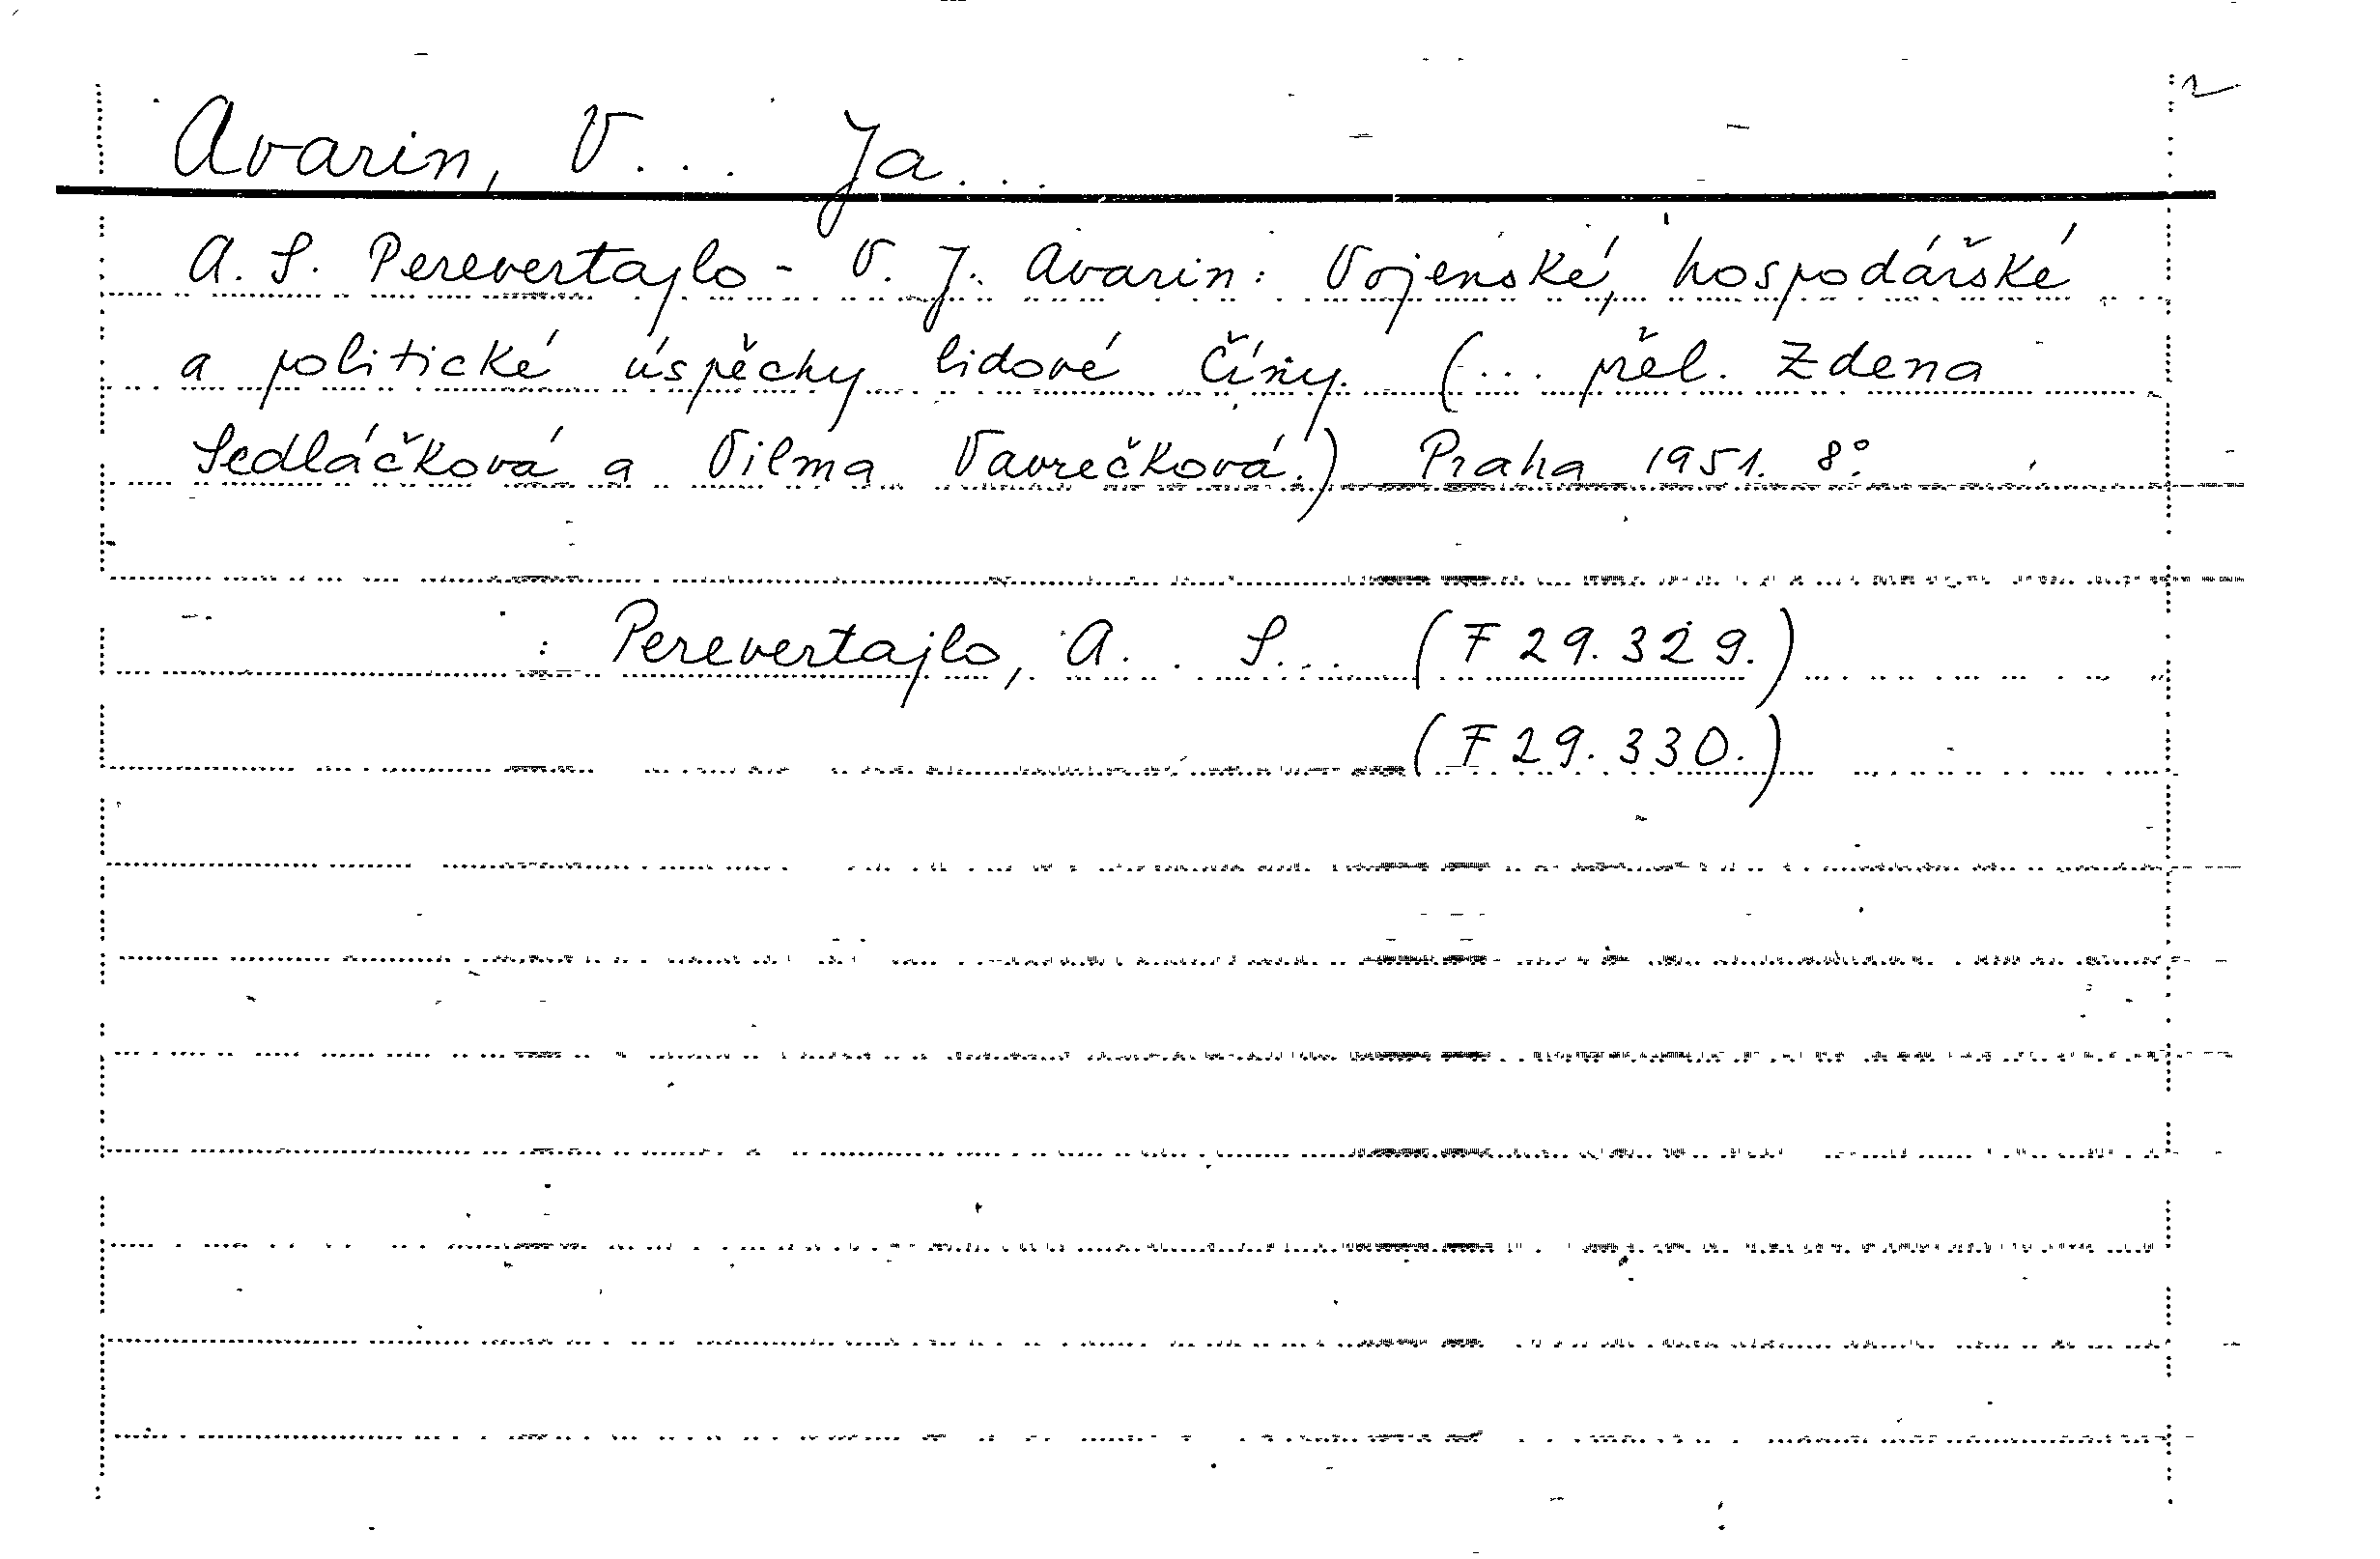 Avarin, V... Ja...
A. S. Perevertajlo - V. J. Avarin: Vojenské, hospodářské
a politické úspěchy lidové Číny. (... přel. Zdena
Sedláčková a Vilma Vavrečková.) Praha 1951. 8°.
: Perevertajlo, A... S... (F 29.329.)
(F 29.330.)